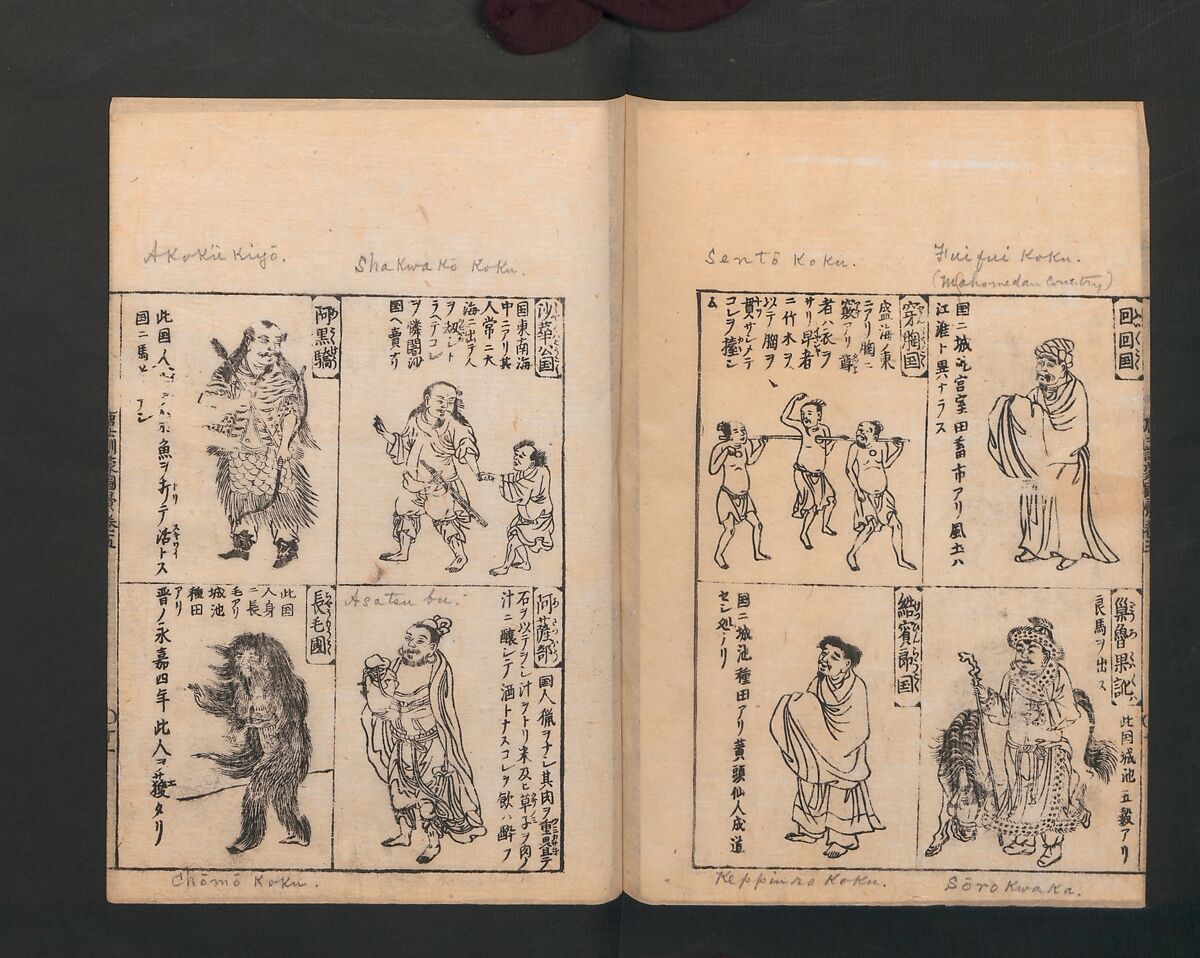 Fuifui Koku.
(Mahomedan Country)
回回国
国ニ城池宮室田畜市アリ風土ハ
江淮ト異ナラス
Sentō Koku.
穿胸国
盛海ノ東
ニアリ胸ニ
竅アリ尊
者ハ衣ヲ
サリ卑者
ニ竹木ヲ
以テ胸ヲ
貫サシメテ
コレヲ擡シ
ム
Sōrokwaka.
巣魯果訛
此国城池五穀アリ
良馬ヲ出ス
Keppinro Koku.
国ニ城池種田アリ黄頭仙人成道
セシ処ナリ
Shakwakō Koku.
沙華公国
国東南海
中ニアリ其
人常ニ大
海ニ出テ人
ヲ劫シト
ラヘテコレ
ヲ
国ヘ賣ナリ
Akokü Kiyō.
阿黒驕
此国人
魚ヲ
テ活トス
国ニ馬
Asatsu bu.
阿薩部
国人猟ヲナシ其肉ヲ重畳テ
石ヲ以テヲシ汁ヲトリ米及ヒ草子ヲ肉ノ
汁ニ醸シテ酒トナスコレヲ飲ハ酔フ
Chōmō Koku.
長毛國
此国
人身
ニ長
毛アリ
城池
種田
アリ
晋ノ永嘉四年此人ヲ獲タリ